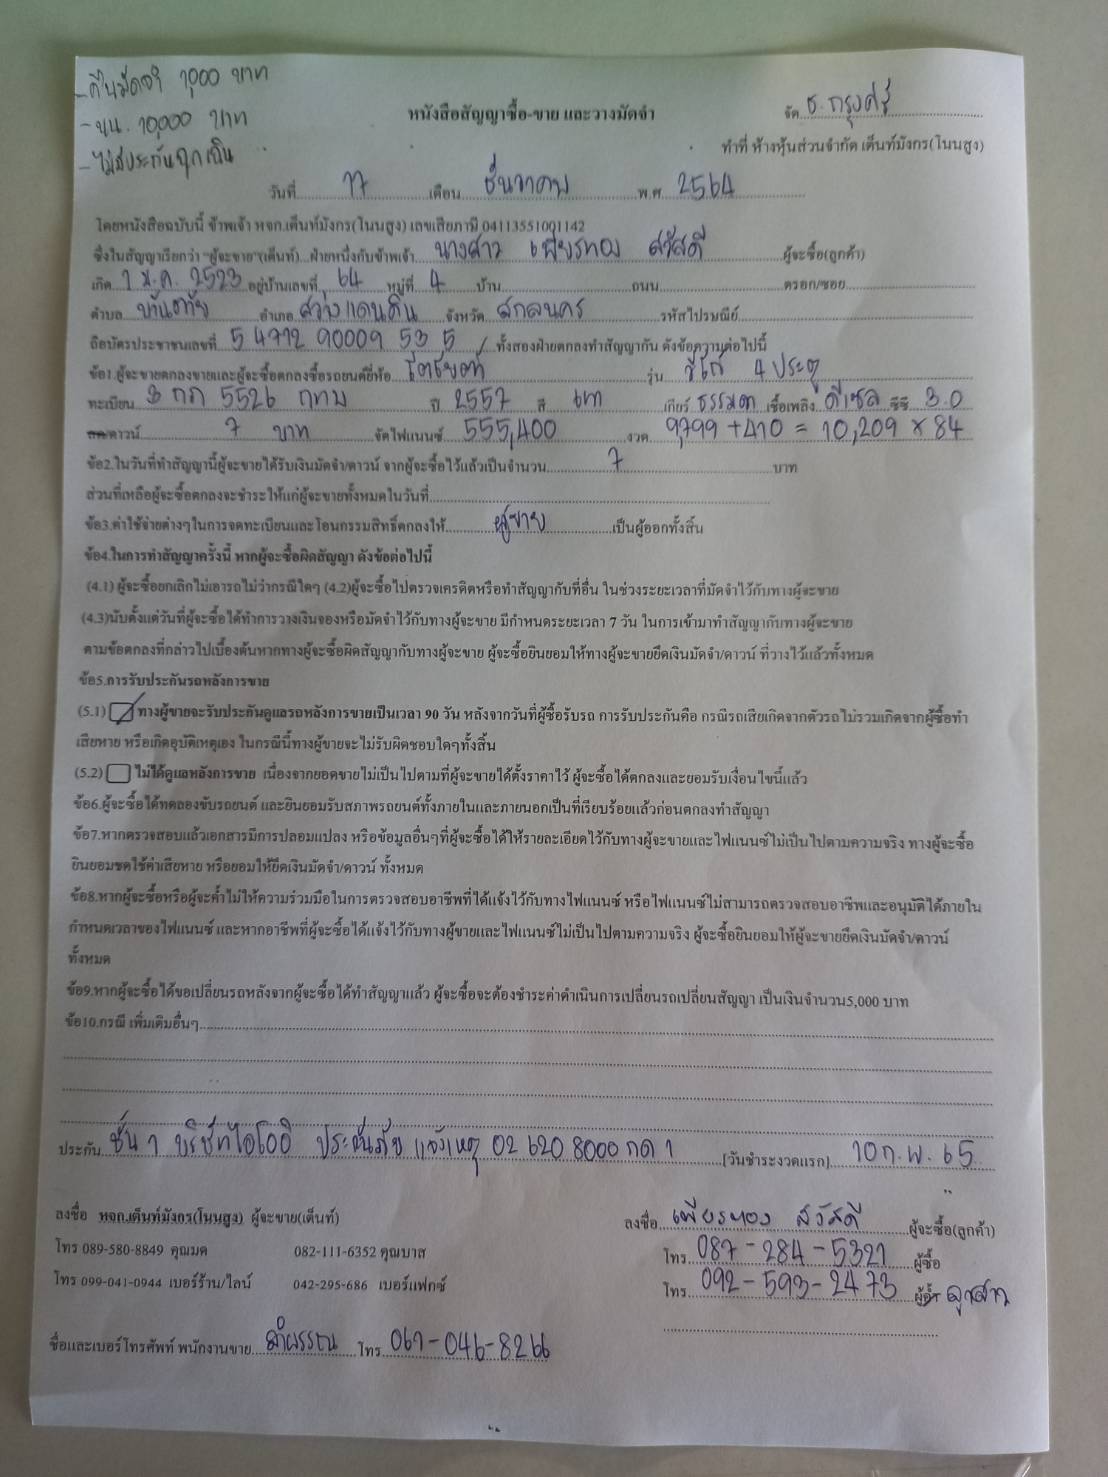 - คืนมัดจำ 1,000 บาท
- ขน. 10,000 บาท
- ไม่มีประกันฉุกเฉิน
หนังสือสัญญาซื้อ-ขาย และวางมัดจำ
จัด ธ.กรุงศรี
ทำที่ ห้างหุ้นส่วนจำกัด เต็นท์มังกร(โนนสูง)
วันที่ 17 เดือน ธันวาคม พ.ศ. 2564
โดยหนังสือฉบับนี้ ข้าพเจ้า หจก.เต็นท์มังกร(โนนสูง) เลขเสียภาษี 04113551001142
ซึ่งในสัญญาเรียกว่า "ผู้จะขาย"(เต็นท์)...ฝ่ายหนึ่งกับข้าพเจ้า นางสาว เพียรทอง สวัสดี ผู้จะซื้อ(ลูกค้า)
เกิด 1 ม.ค. 2523 อยู่บ้านเลขที่ 64 หมู่ที่ 4 บ้าน ถนน ตรอก/ซอย
ตำบล บ้านต้าย อำเภอ สว่างแดนดิน จังหวัด สกลนคร รหัสไปรษณีย์
ถือบัตรประชาชนเลขที่ 5 4712 90009 53 5 ทั้งสองฝ่ายตกลงทำสัญญากัน ดังข้อความต่อไปนี้
ข้อ1.ผู้จะขายตกลงขายและผู้จะซื้อตกลงซื้อรถยนต์ยี่ห้อ รุ่น วีโก้ 4 ประตู
ทะเบียน 3 กภ 5526 กทม ปี 2557 สี เทา เกียร์ ธรรมดา เชื้อเพลิง ดีเซล ซีซี 3.0
ดาวน์ 7 บาท จัดไฟแนนซ์ 555,400 งวด 9,799 + 410 = 10,209 × 84
ข้อ2.ในวันที่ทำสัญญานี้ผู้จะขายได้รับเงินมัดจำ/ดาวน์ จากผู้จะซื้อไว้แล้วเป็นจำนวน 7 บาท
ส่วนที่เหลือผู้จะซื้อตกลงจะชำระให้แก่ผู้จะขายทั้งหมดในวันที่
ข้อ3.ค่าใช้จ่ายต่างๆในการจดทะเบียนและโอนกรรมสิทธิ์ตกลงให้ ผู้ขาย เป็นผู้ออกทั้งสิ้น
ข้อ4.ในการทำสัญญาครั้งนี้ หากผู้จะซื้อผิดสัญญา ดังข้อต่อไปนี้
(4.1) ผู้จะซื้อยกเลิกไม่เอารถไม่ว่ากรณีใดๆ (4.2)ผู้จะซื้อไปตรวจเครดิตหรือทำสัญญากับที่อื่น ในช่วงระยะเวลาที่มัดจำไว้กับทางผู้จะขาย
(4.3)นับตั้งแต่วันที่ผู้จะซื้อได้ทำการวางเงินจองหรือมัดจำไว้กับทางผู้จะขาย มีกำหนดระยะเวลา 7 วัน ในการเข้ามาทำสัญญากับทางผู้จะขาย
ตามข้อตกลงที่กล่าวไปเบื้องต้นหากทางผู้จะซื้อผิดสัญญากับทางผู้จะขาย ผู้จะซื้อยินยอมให้ทางผู้จะขายยึดเงินมัดจำ/ดาวน์ ที่วางไว้แล้วทั้งหมด
ข้อ5.การรับประกันรถหลังการขาย
(5.1) ทางผู้ขายจะรับประกันดูแลรถหลังการขายเป็นเวลา 90 วัน หลังจากวันที่ผู้ซื้อรับรถ การรับประกันคือ กรณีรถเสียเกิดจากตัวรถไม่รวมเกิดจากผู้ซื้อทำ
เสียหาย หรือเกิดอุบัติเหตุเอง ในกรณีนี้ทางผู้ขายจะไม่รับผิดชอบใดๆทั้งสิ้น
(5.2) ไม่ได้ดูแลหลังการขาย เนื่องจากยอดขายไม่เป็นไปตามที่ผู้จะขายได้ตั้งราคาไว้ ผู้จะซื้อได้ตกลงและยอมรับเงื่อนไขนี้แล้ว
ข้อ6.ผู้จะซื้อได้ทดลองขับรถยนต์ และยินยอมรับสภาพรถยนต์ทั้งภายในและภายนอกเป็นที่เรียบร้อยแล้วก่อนตกลงทำสัญญา
ข้อ7.หากตรวจสอบแล้วเอกสารมีการปลอมแปลง หรือข้อมูลอื่นๆที่ผู้จะซื้อได้ให้รายละเอียดไว้กับทางผู้จะขายและไฟแนนซ์ไม่เป็นไปตามความจริง ทางผู้จะซื้อ
ยินยอมชดใช้ค่าเสียหาย หรือยอมให้ยึดเงินมัดจำ/ดาวน์ ทั้งหมด
ข้อ8.หากผู้จะซื้อหรือผู้จะค้ำไม่ให้ความร่วมมือในการตรวจสอบอาชีพที่ได้แจ้งไว้กับทางไฟแนนซ์ หรือไฟแนนซ์ไม่สามารถตรวจสอบอาชีพและอนุมัติได้ภายใน
กำหนดเวลาของไฟแนนซ์ และหากอาชีพที่ผู้จะซื้อได้แจ้งไว้กับทางผู้ขายและไฟแนนซ์ไม่เป็นไปตามความจริง ผู้จะซื้อยินยอมให้ผู้จะขายยึดเงินมัดจำ/ดาวน์
ทั้งหมด
ข้อ9.หากผู้จะซื้อได้ขอเปลี่ยนรถหลังจากผู้จะซื้อได้ทำสัญญาแล้ว ผู้จะซื้อจะต้องชำระค่าดำเนินการเปลี่ยนรถเปลี่ยนสัญญา เป็นเงินจำนวน5,000 บาท
ข้อ10.กรณี เพิ่มเติมอื่นๆ
ประกัน ชั้น 1 บริษัทไอโออิ ประกันภัย แจ้งเหตุ 02 620 8000 กด 1 [วันชำระงวดแรก] 10 ก.พ. 65
ลงชื่อ หจก.เต็นท์มังกร(โนนสูง) ผู้จะขาย(เต็นท์) ลงชื่อ เพียรทอง สวัสดี ผู้จะซื้อ(ลูกค้า)
โทร 089-580-8849 คุณมด 082-111-6352 คุณบาส โทร 087-284-5321 ผู้ซื้อ
โทร 099-041-0944 เบอร์ร้าน/ไลน์ 042-295-686 เบอร์แฟกซ์ โทร 092-593-2473 ลูกสาว
ชื่อและเบอร์โทรศัพท์ พนักงานขาย ลำพรรณ โทร 061-046-8266